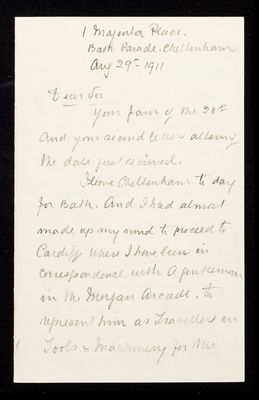 1 Majenta Place.
Bath Parade. Cheltenham
Aug 29th 1911
Dear Sir
Your favr of the 28th
And your second letter altering
the date just received.
I leave Cheltenham to day
for Bath. And I had almost
made up my mind to proceed to
Cardiff where I have been in
correspondence with A gentleman
in the Morgan Arcade. to
represent him as Traveller in
Tools & Machinery for the